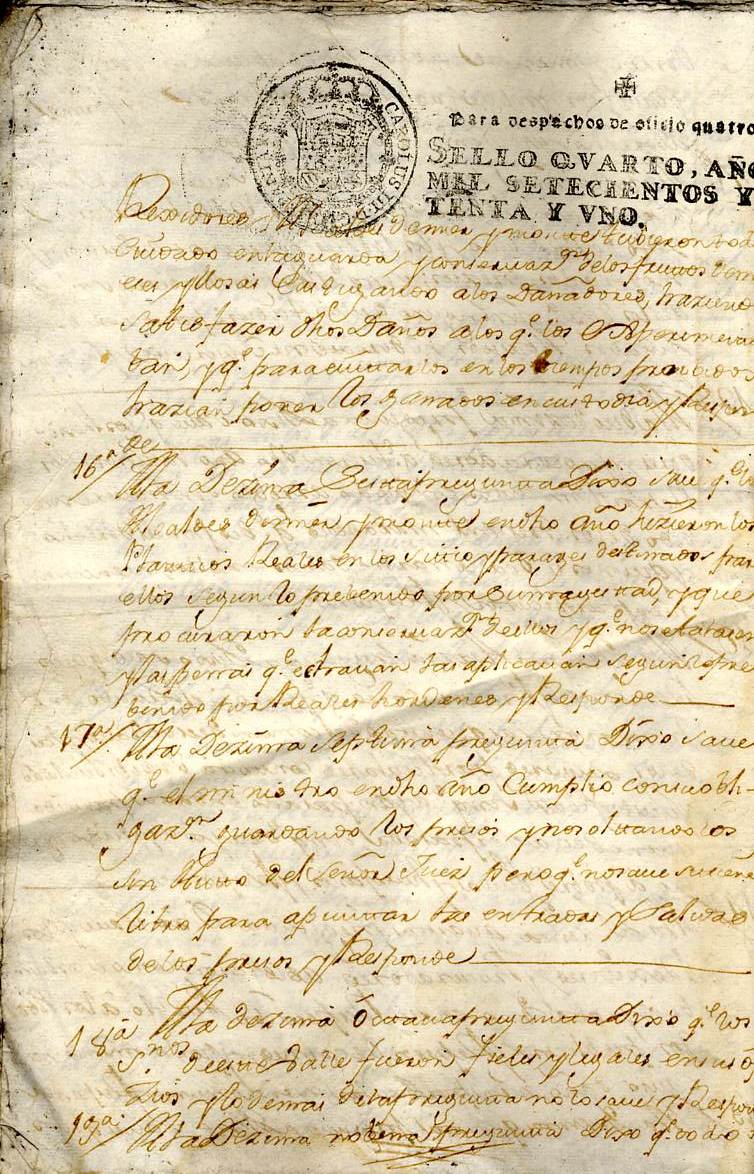 CAROLUS III D. G.
Para despachos de oficio quatro
SELLO QVARTO, AÑO
MIL SETECIENTOS Y
TENTA Y VNO.
Rexidores y monte tubieron tod
Cuidado en la guarda y conservazn. de los frutos
y llosas Castigando a los Dañadores, haziend
satisfazer dhos Daños a los qe. los Experimen
tan, y qe. para evitarlos en los tiempos prohibidos
hazian poner los ganados en custodia y Respon
de
16a/ A la Dezima Sextta pregunta Dixo save qe. l
Alcaldes y monte en dho año hizieron los
Plantios Reales en los sitios y parages destinados par
ellos segun lo prebenido por su magestad, y que
procuraron la conservazn. de ellos y qe. no se
y las penas qe. las aplicavan segun lo pre
benido por Reales hordenes y Responde
17a/ A la Dezima septima pregunta Dixo save
qe. el ministro en dho año Cumplio con su obli-
gazn. guardando los presos y no soltandolos
sin del Señor Juez pero qe. no save
libro para apuntar las entradas y Salidas
de los presos y Responde
18a A la dezima Octtava pregunta Dixo qe. los
Snos. de este Valle fueron fieles y legales en sus o
zios y lo demas de la pregunta no lo save y Respon
19a/ A la Dezima nobena pregunta Dixo qe. todo